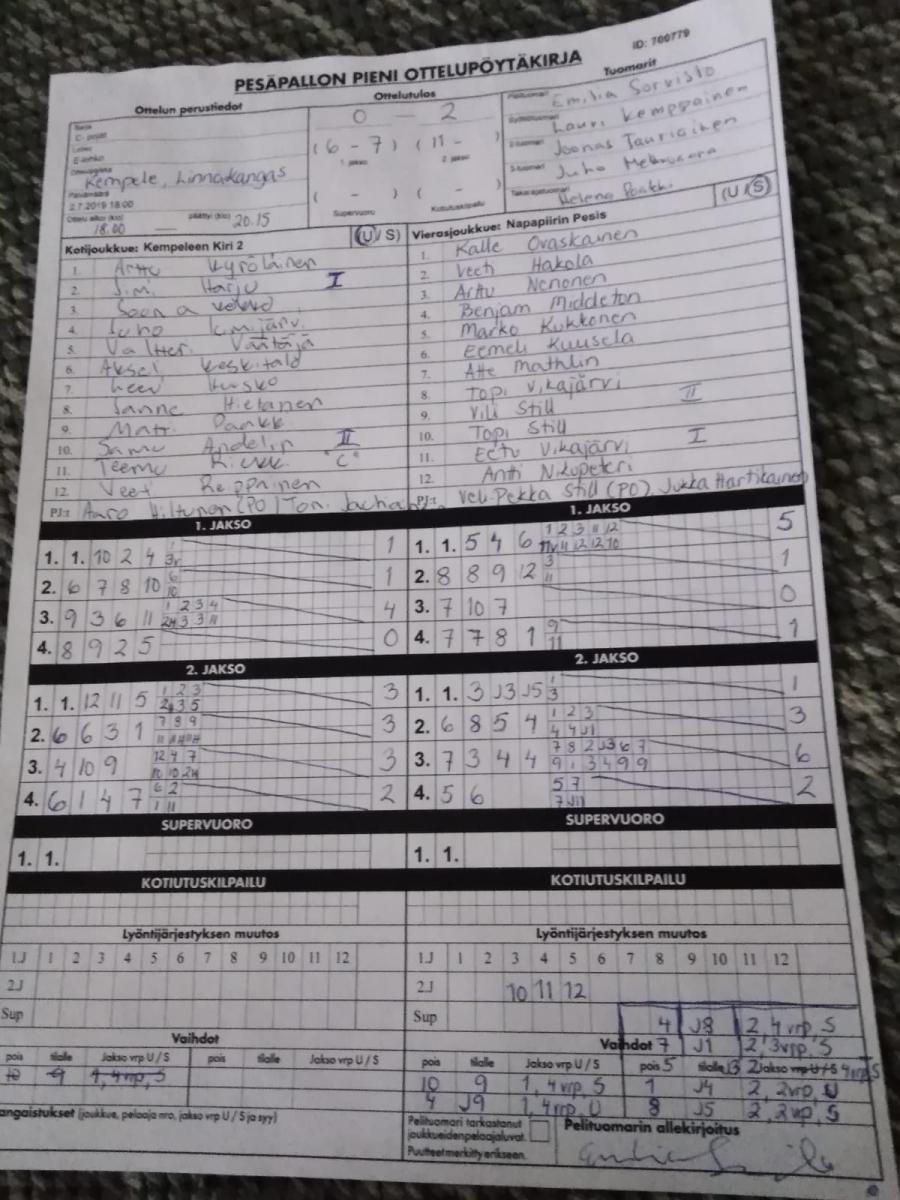 PESÄPALLON PIENI OTTELUPÖYTÄKIRJA
ID: 700779
Ottelun perustiedot
C-pojat
E-lohko
Kempele, Linnakangas
Päivämäärä
2.7.2019 18:00
Ottelu alkoi (klo) päättyi (klo)
18.00 20.15
Ottelutulos
0 - 2
(6 - 7) (11 -
1. jakso 2. jakso
( - ) ( - )
Supervuoro Kotiutuskilpailu
Tuomarit
Pelituomari Emilia Sorvisto
Syöttötuomari Lauri Kemppainen
2-tuomari Joonas Tauriainen
3-tuomari Juho
Takarajatuomari Helena
Kotijoukkue: Kempeleen Kiri 2 (U / S)
1. Arttu Kyröläinen
2. Harju I
3.
4. Juho
5. Valtteri Väätäjä
6. Keskitalo
7.
8. Sanne Hietanen
9.
10. Samu Andelin II
11. Teemu "C"
12. Reppainen
PJ:t Aaro Hiltunen (PO)
Vierasjoukkue: Napapiirin Pesis (U / S)
1. Kalle Ovaskainen
2. Veeti Hakola
3. Arttu Nenonen
4. Benjam Middleton
5. Marko Kukkonen
6. Eemeli Kuusela
7. Atte Mathlin
8. Topi Vikajärvi II
9. Vili Still
10. Topi Still
11. Eetu Vikajärvi I
12. Antti
PJ:t Veli-Pekka Still (PO), Jukka Hartikainen
1. JAKSO
1. 1. 10 2 4 1
2. 6 7 8 10 6 10 1
3. 9 3 6 11 1 2 3 4 4
4. 8 9 2 5 0
1. JAKSO
1. 1. 5 4 6 1 2 3 11 12 11 12 12 10 5
2. 8 8 9 12 3 11 1
3. 7 10 7 0
4. 7 7 8 1 9 11 1
2. JAKSO
1. 1. 12 11 5 1 2 3 3 5 3
2. 6 6 3 1 7 8 9 3
3. 4 10 9 12 4 7 10 10 3
4. 6 1 4 7 6 2 1 11 2
2. JAKSO
1. 1. 3 J3 J5 1 3 1
2. 6 8 5 4 1 2 3 4 4 J1 3
3. 7 3 4 4 7 8 2 J3 6 7 9 1 3 4 9 9 6
4. 5 6 5 7 7 J11 2
SUPERVUORO
1. 1.
SUPERVUORO
1. 1.
KOTIUTUSKILPAILU
KOTIUTUSKILPAILU
Lyöntijärjestyksen muutos
1.J 1 2 3 4 5 6 7 8 9 10 11 12
2J
Sup
Lyöntijärjestyksen muutos
1.J 1 2 3 4 5 6 7 8 9 10 11 12
2J 10 11 12
Sup 4 J8 2, 4 vrp, S
Vaihdot
pois tilalle Jakso vrp U / S pois tilalle Jakso vrp U / S
10 9 1, 4 vrp, S
Vaihdot 7 J1 2, 3 vrp, S
pois tilalle Jakso vrp U / S pois 5 tilalle J3 2 Jakso vrp U / S 4 vrp S
10 9 1, 4 vrp, S 1 J4 2, 2 vrp, U
4 J9 1, 4 vrp, U 8 J5 2, 2 vrp, S
angaistukset (joukkue, pelaaja nro, jakso vrp U / S ja syy)
Pelituomari tarkastanut
joukkueidenpelaajaluvat.
Puutteet merkitty erikseen.
Pelituomarin allekirjoitus